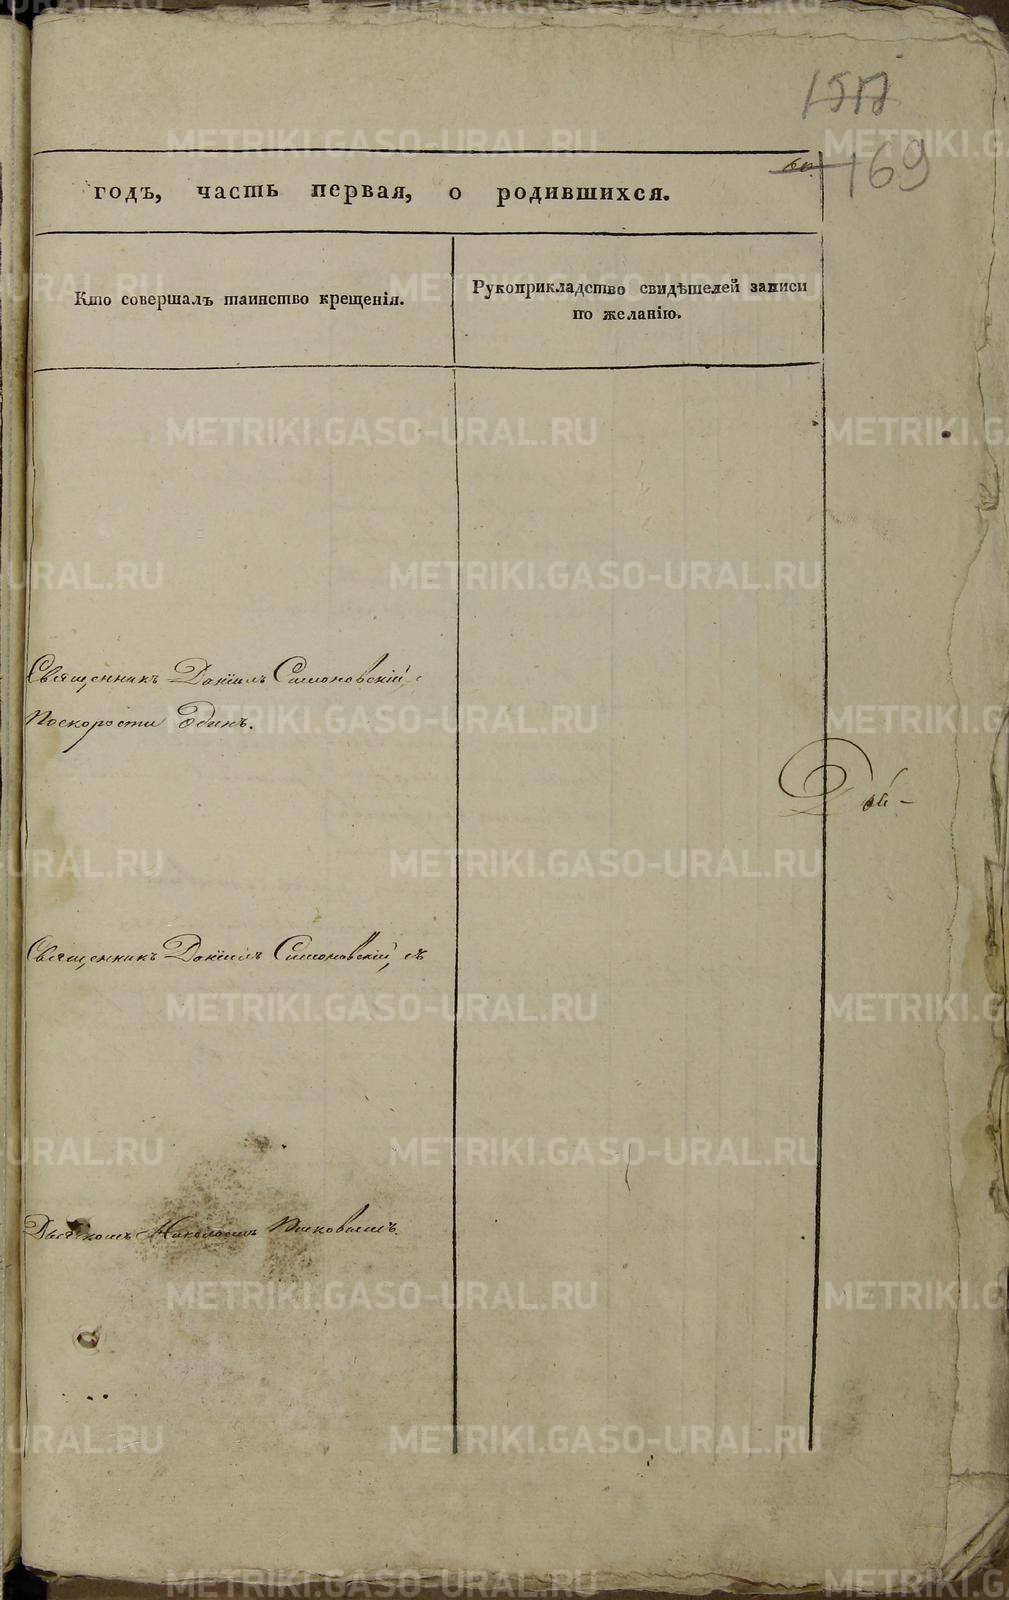 1517
60
169
годъ, часть первая, о родившихся.
Кто совершалъ таинство крещенія.
Рукоприкладство свидѣтелей записи
по желанію.
Священникъ Даніилъ Симоновскій,
поскорости Одинъ.
Священникъ Даніилъ Симоновскій, съ
Дьячкомъ Николаемъ
METRIKI.GASO-URAL.RU